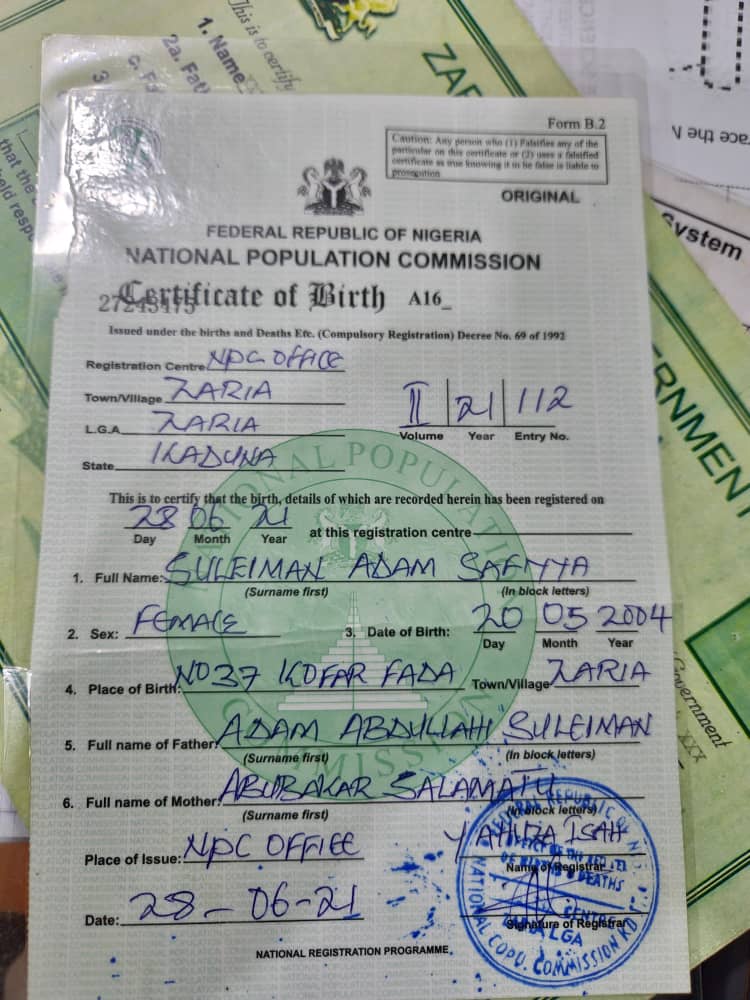 This is to certify
1. Name
2a. Fat
Form B.2
Caution: Any person who (1) Falsifies any of the
particular on this certificate or (2) uses a falsified
certificate as true knowing it to be false is liable to
prosecution
ORIGINAL
FEDERAL REPUBLIC OF NIGERIA
NATIONAL POPULATION COMMISSION
Certificate of Birth A16_
Issued under the births and Deaths Etc. (Compulsory Registration) Decree No. 69 of 1992
Registration Centre NPC OFFICE
Town/Village ZARIA
L.G.A. ZARIA
State KADUNA
II 21 112
Volume Year Entry No.
This is to certify that the birth, details of which are recorded herein has been registered on
28 06 21 at this registration centre
Day Month Year
1. Full Name: SULEIMAN ADAM SAFIYYA
(Surname first) (In block letters)
2. Sex: FEMALE 3. Date of Birth: 20 05 2004
Day Month Year
4. Place of Birth: NO 37 KOFAR FADA Town/Village ZARIA
5. Full name of Father: ADAM ABDULLAHI SULEIMAN
(Surname first) (In block letters)
6. Full name of Mother: ABUBAKAR SALAMATU
(Surname first) (In block letters)
Place of Issue: NPC OFFICE YAHUZA ISAH
Name of Registrar
Date: 28-06-21
Signature of Registrar
NATIONAL REGISTRATION PROGRAMME
NATIONAL POPULATION
COMMISSION
System
ERNMENT
Government
xxx